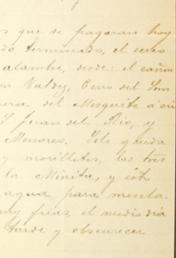 que se pagaran hoy
terminado, el cerco
alambre, desde el cañon
Valdez, Cerro del Som
del Mezquite á ori
S. Juan del Rio, y
Menores. Sólo queda
y morilletes, los tres
la Minita, y esto
agua para mescla.
muy frias, el medio dia
tarde y obscurecer